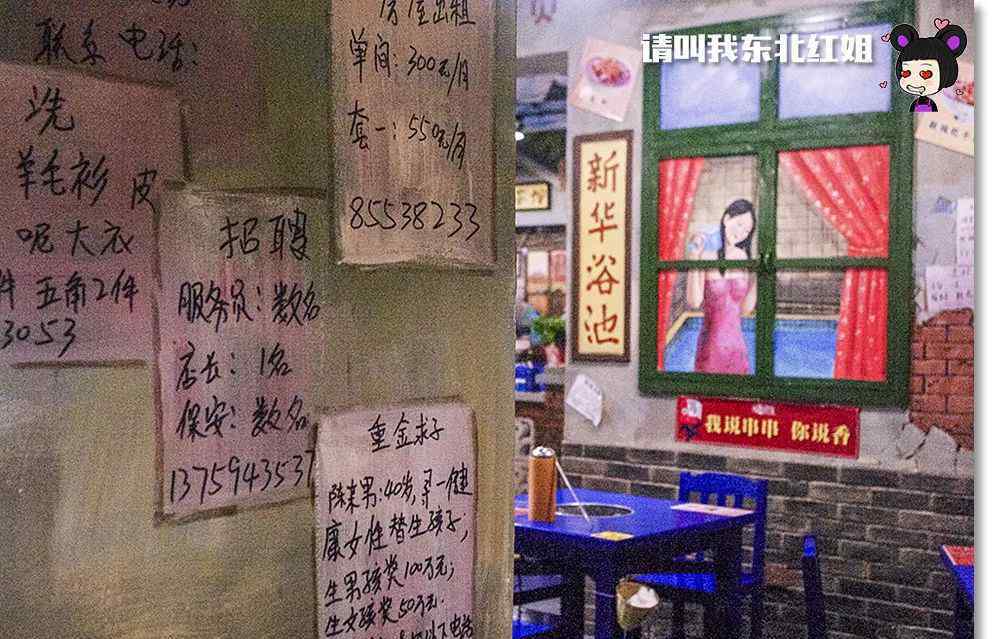 联系电话:
洗
羊毛衫 皮
呢大衣
件 五角2件
3053
招聘
服务员:数名
店长:1名
保安:数名
1375943537
房屋出租
单间:300元/月
套一:550元/月
85538233
重金求子
陈某男:40岁,寻一健
康女性替生孩子;
生男孩奖100万元;
生女孩奖50万元.
以下电话
新华浴池
我说串串 你说香
请叫我东北红姐